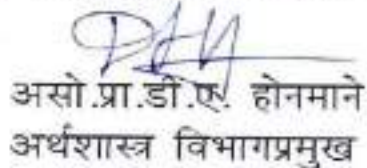 असो.प्रा.डी.ए. होनमाने
अर्थशास्त्र विभागप्रमुख